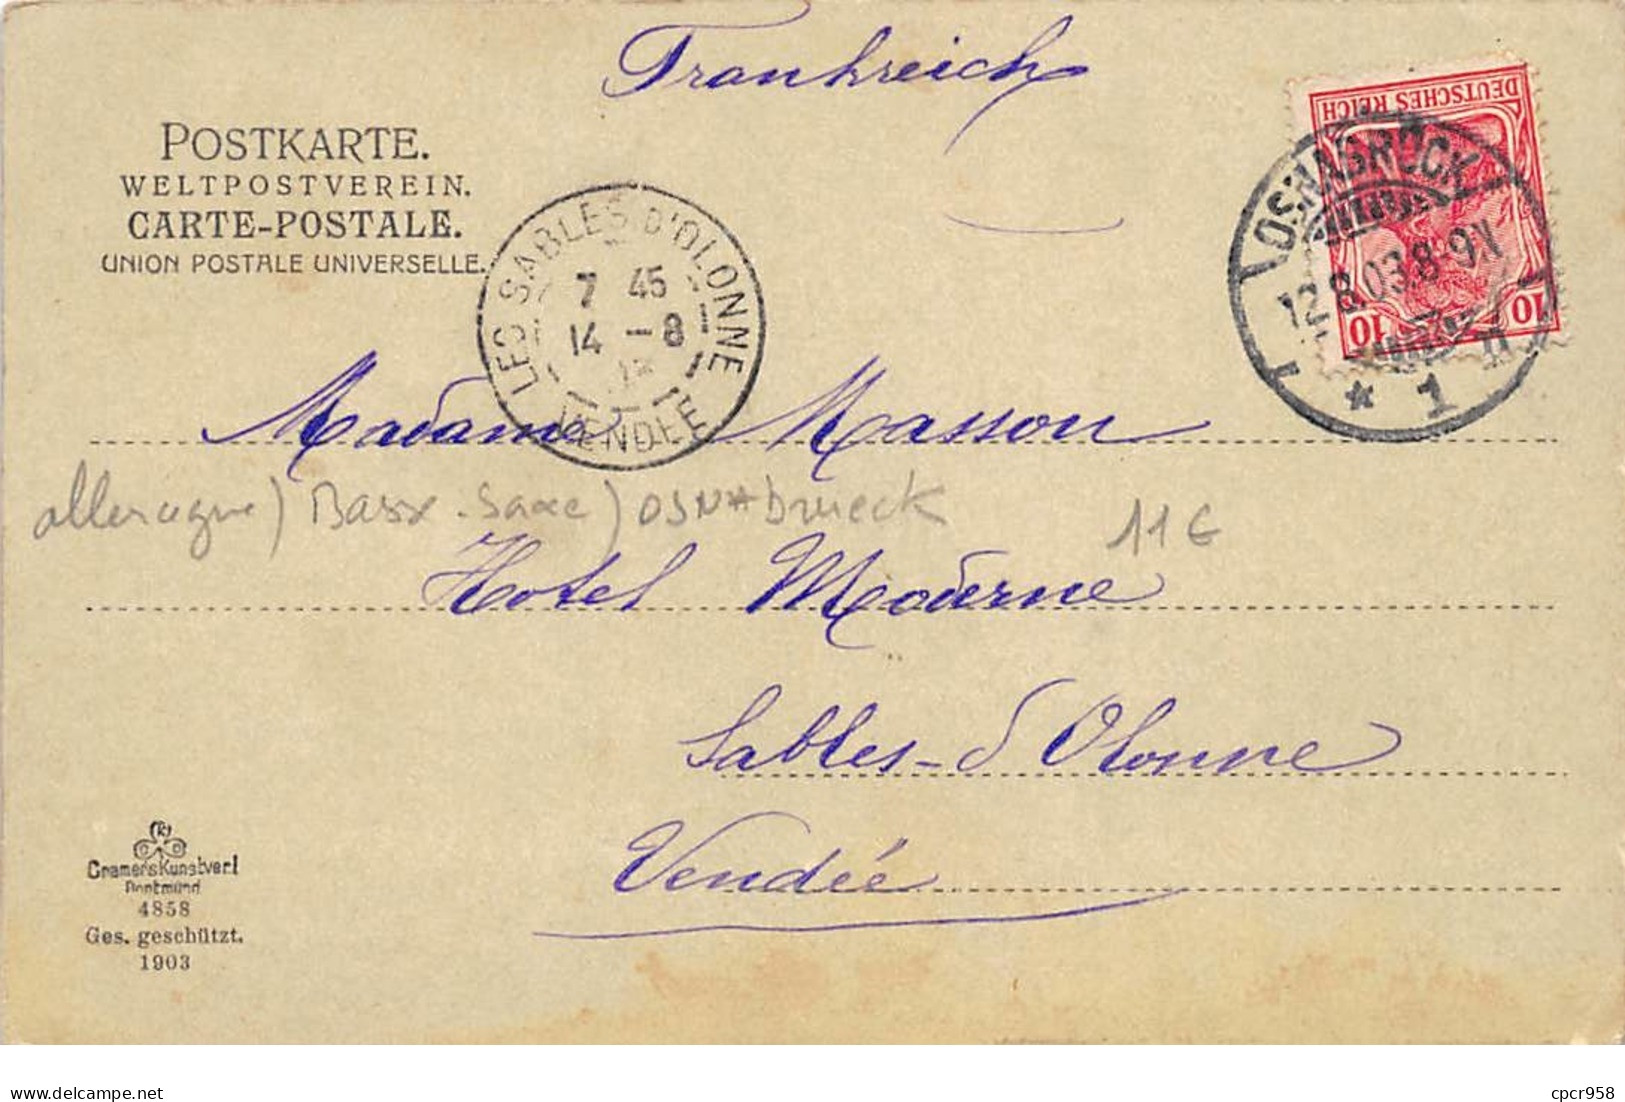 Frankreich
POSTKARTE.
WELTPOSTVEREIN.
CARTE-POSTALE.
UNION POSTALE UNIVERSELLE.
LES SABLES D'OLONNE
7 45
14 - 8
VENDEE
DEUTSCHES REICH
10 10
OSNABRÜCK
12.8.03.8-9N
* 1
Madame Masson
allemagne) Basse-Saxe) OSNAbrueck 11€
Hotel Moderne
Sables-d'Olonne
Vendée
Cramers Kunstverl
Dortmund
4858
Ges. geschützt.
1903
delcampe.net
cpcr958